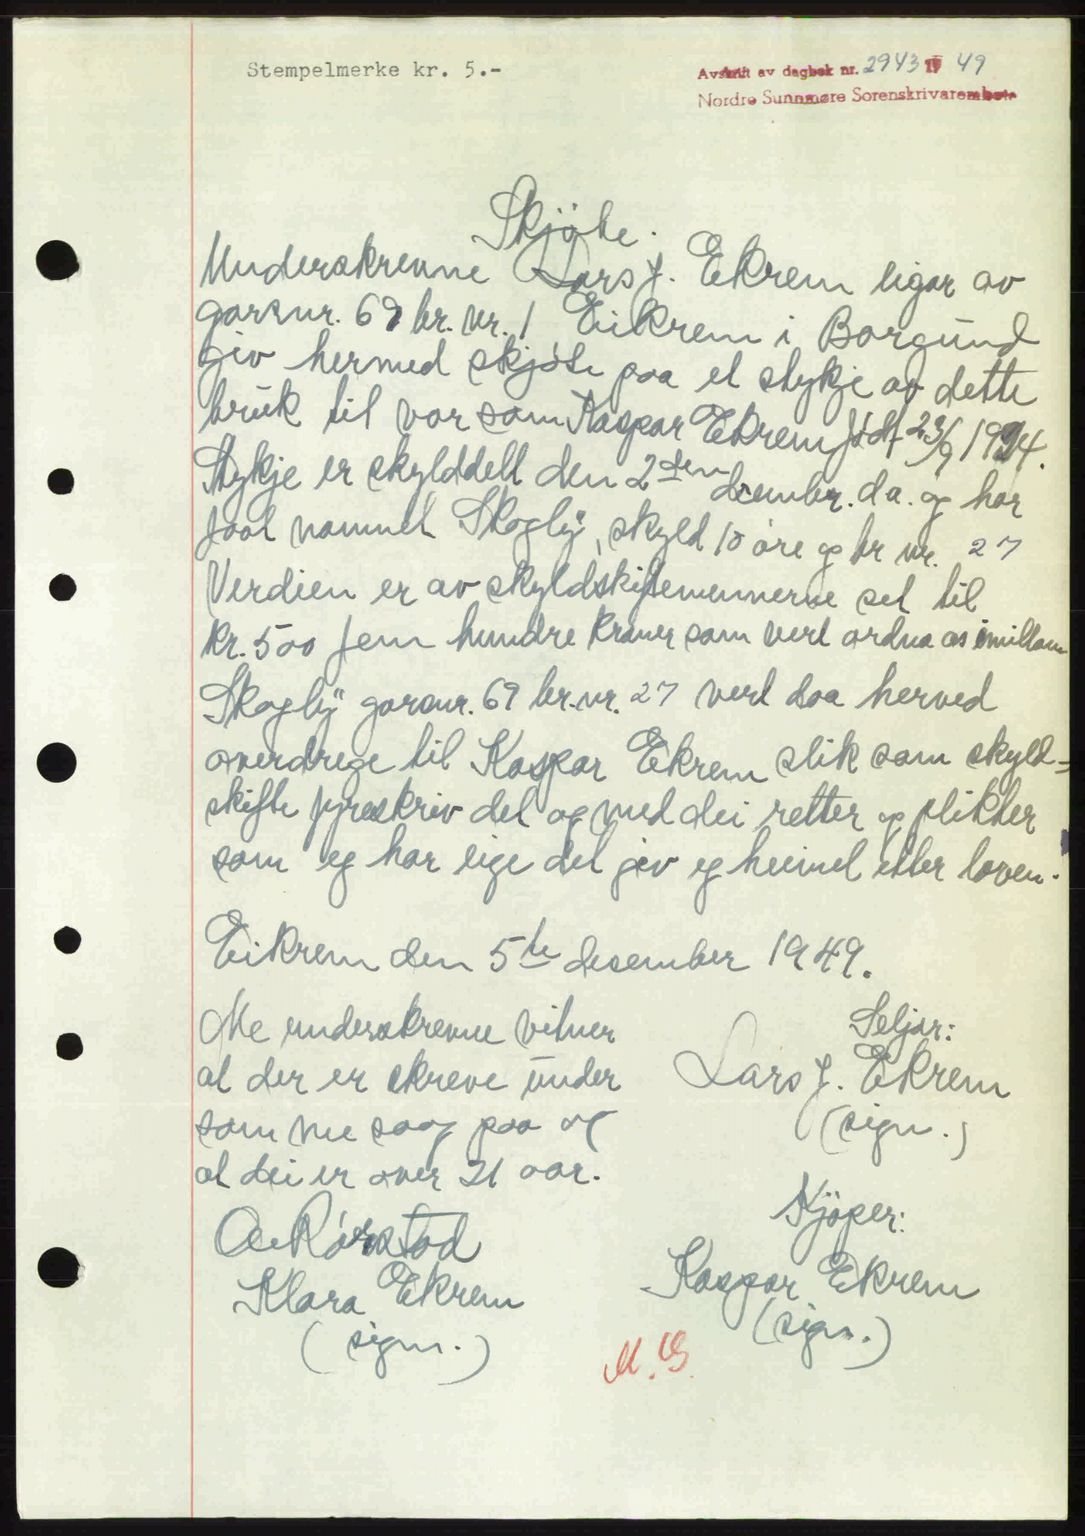 Stempelmerke kr. 5.-
Avskrift av dagbok nr. 2943 19 49
Nordre Sunnmøre Sorenskrivarembete
Skjöte.
Underskrevne Lars J. Ekrem eigar av
garsnr. 69 br. nr. 1 Eikrem i Borgund
gjev hermed skjöte paa et stykje av dette
bruk til vor søn Kaspar Ekrem född 23/9 1914.
Stykje er skylddelt den 2den desember. d.a. og har
faat namnet "Skogly", skyld 10 øre og br nr. 27
Verdien er av skyldskiftemennerne set til
kr. 500 fem hundre kroner som vert ordna os imillom
"Skogly" garsnr. 69 br.nr. 27 vert daa herved
overdrege til Kaspar Ekrem slik som skyld=
skifte fyreskriv det og med dei retter og plikter
som eg har eige det gjev eg heimel etter loven.
Eikrem den 5te desember 1949.
Me underskrevne vitner
at der er skreve under
som me saag paa og
at dei er over 21 aar.
Seljar:
Lars J. Ekrem
(sign.)
Kjöper:
Kaspar Ekrem
(sign.)
Klara Ekrem
(sign.)
M.G.